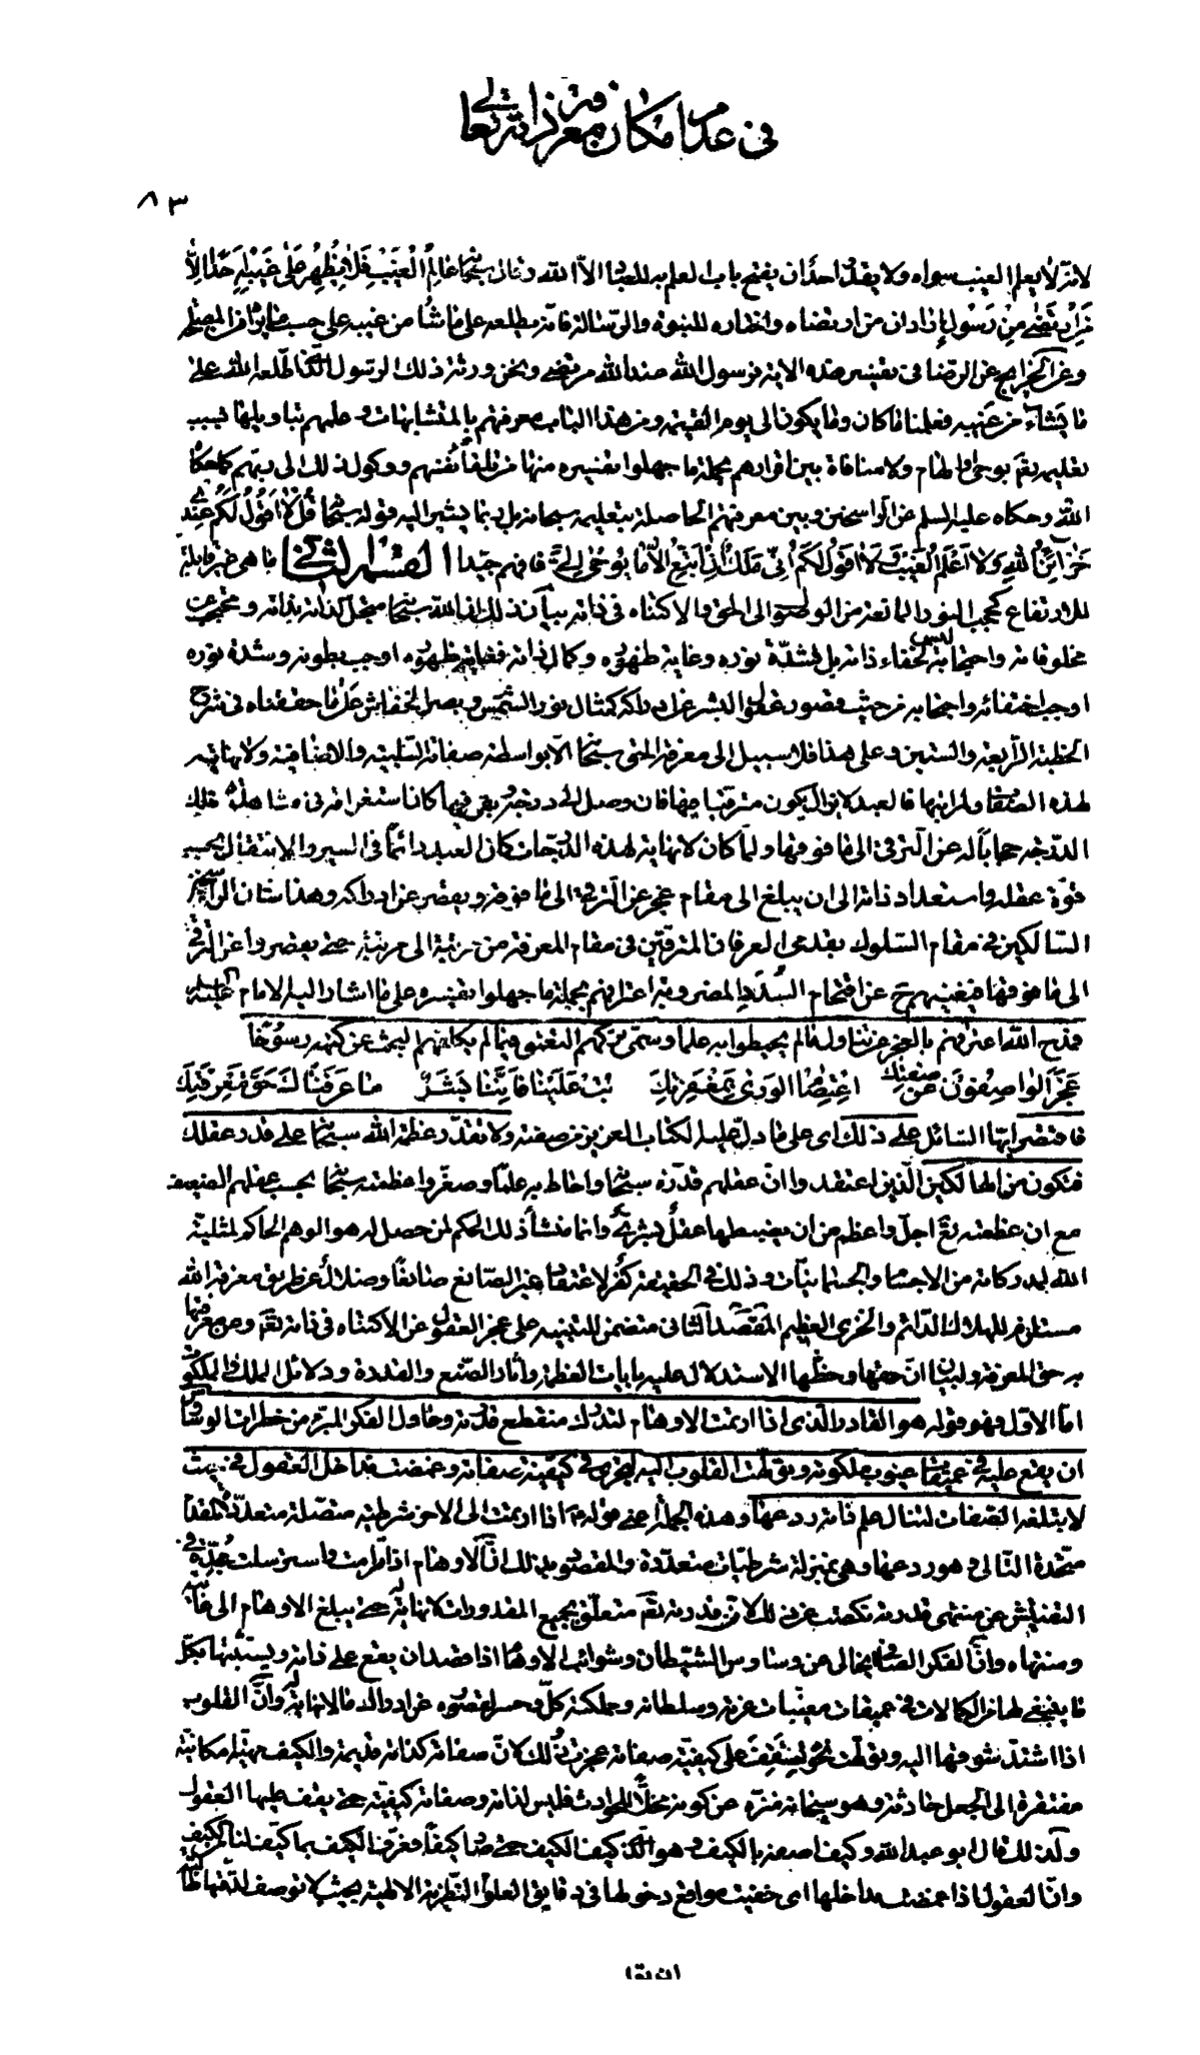 فى عدم امكان معرفة ذاته تعالى
٨٣
لانه لا يعلم الغيب سواه ولا يقدر احد ان يفتح باب العلم به للعباد الا الله وقال سبحانه عالم الغيب فلا يظهر على غيبه احدا الا
من ارتضى من رسول اذ ان من ارتضاه واختاره للنبوة والرسالة فانه يطلعه على ما شاء من غيبه على حسب ما يراه من المصلحة
وعن الخرايج عن الرضا فى تفسير هذه الاية فرسول الله عند الله مرتضى ونحن ورثة ذلك الرسول الذى اطلعه الله على
ما يشاء من غيبه فعلمنا ما كان وما يكون الى يوم القيمة ومن هذا الباب معرفتهم بالمتشابهات وعلمهم بتاويلها بسبب
تعليمه تعالى بوحى والهام ولا منافاة بين اقرارهم بجملة ما جهلوا تفسيره منها من تلقاء انفسهم ووكول ذلك الى ربهم كما حكاه
الله وحكاه عليه السلم عن الراسخين وبين معرفتهم الحاصلة بتعليمه سبحانه بل ربما يشير اليه قوله سبحانه قل لا اقول لكم عندى
خزائن الله ولا اعلم الغيب ولا اقول لكم انى ملك ان اتبع الا ما يوحى الى فافهم جيدا القسم الثانى ما هى غير قابلة
للارتفاع كحجب النور المانعة من الوصول الى الحق والاكتناه فى ذاته بيان ذلك ان الله سبحانه متجل لذاته بذاته ومحتجب عن
مخلوقاته واحتجابه ليس لخفاء ذاته بل لشدة نوره وغاية ظهوره وكمال ذاته فغاية ظهوره اوجب بطونه وشدة نوره
اوجب اختفائه واحتجابه من حيث قصور عقول البشر عن ادراكه كمثال نور الشمس وبصر الخفاش على ما حققناه فى شرح
الخطبة الرابعة والستين وعلى هذا فلا سبيل الى معرفة الحق سبحانه الا بواسطة صفاته السلبية والاضافية ولا نهاية
لهذه الصفات ولمراتبها فالعبد لا يزال يكون مترقيا فيها فان وصل الى درجة وبقى فيها كان استغراقه فى مشاهدة تلك
الدرجة حجابا له عن الترقى الى ما فوقها ولما كان لا نهاية لهذه الدرجات كان العبد دائما فى السير والانتقال بحسب
قوة عقله واستعداد ذاته الى ان يبلغ الى مقام عجز عن الترقى الى ما فوقه ويقصر عن ادراكه وهذا شان الراسخين
السالكين فى مقام السلوك بقدمى العرفان المترقين فى مقام المعرفة من مرتبة الى مرتبة حتى يقصروا عن الترقى
الى ما فوقها فيغنيهم ح عن اقتحام السدد المضروبة اعترافهم بجملة ما جهلوا تفسيره على ما اشار اليه الامام عليه السلام
فمدح الله اعترافهم بالعجز عن تناول ما لم يحيطوا به علما وسمى تركهم التعمق فيما لم يكلفهم البحث عن كنهه رسوخا
عجز الواصفون عن صفتك اعتصام الورى بمغفرتك تب علينا فاننا بشر ما عرفناك حق معرفتك
فاقتصر ايها السائل على ذلك اى على ما دل عليه الكتاب العزيز من صفته ولا تقدر عظمة الله سبحانه على قدر عقلك
فتكون من الهالكين الذين اعتقدوا ان عقلهم قدره سبحانه واحاط به علما وصغروا عظمته سبحانه بحسب عقلهم الضعيف
مع ان عظمته تعالى اجل واعظم من ان يضبطها عقل بشرى وانما منشأ ذلك الحكم لمن حصل له هو الوهم الحاكم لمثلية
الله لمدركاته من الاجسام والجسمانيات وذلك فى الحقيقة كفر لاعتقاد غير الصانع صانعا وضلال عن طريق معرفة الله
مستلزم للهلاك الدائم والخزى العظيم المقصد الثانى متضمن للتنبيه على عجز العقول عن الاكتناه فى ذاته تعالى وعن معرفتها
به حق المعرفة ولبيان ان حقها وحظها الاستدلال عليه بايات العظمة وآثار الصنع والقدرة ودلائل الملك والملكوت
اما الاول فهو قوله هو القادر الذى اذا ارتمت الاوهام لتدرك منقطع قدرته وحاول الفكر المبرء من خطرات الوساوس
ان يقع عليه فى عميقات غيوب ملكوته وتولهت القلوب اليه لتجرى فى كيفية صفاته وغمضت مداخل العقول فى حيث
لا تبلغه الصفات لتنال علم ذاته ردعها وهذه الجملة اعنى قوله اذا ارتمت الى الاخر شرطية متصلة متعددة المقدم
متحدة التالى هو ردعها وهى بمنزلة شرطيات متعددة والمقصود بذلك ان الاوهام اذا ترامت واسترسلت مجدة فى
التفتيش عن منتهى قدرته نكصت عن ذلك لان قدرته تعالى متعلق بجميع المقدورات لا نهاية له حتى يبلغ الاوهام الى غايته
ومنتهاه وان الفكر الصافى الخالى عن وساوس الشيطان وشوائب الاوهام اذا قصد ان يقع على ذاته ويستثبتها بكل
ما ينبغى لها من الكمالات فى عميقات مغيبات عزته وسلطانه ومملكته كل وحسر لقصوره عن ادراك ما لا نهاية له وان القلوب
اذا اشتد شوقها اليه وتولهت نحوه لتقف على كيفية صفاته عجزت وذلك لان صفاته كذاته قديمة والكيف مهية امكانية
مفتقرة الى الجعل حادثة وهو سبحانه منزه عن كونه محلا للحوادث فليس لذاته وصفاته كيفية حتى يقف عليها العقول
ولذلك قال ابو عبد الله وكيف اصفه بالكيف وهو الذى كيف الكيف حتى صار كيفا فعرفت الكيف بما كيف لنا من الكيف
وان العقول اذا غمضت مداخلها اى خفيت مواقع دخولها فى دقايق العلوم النظرية الالهية بحيث لا توصف لدقتها
ان تقا